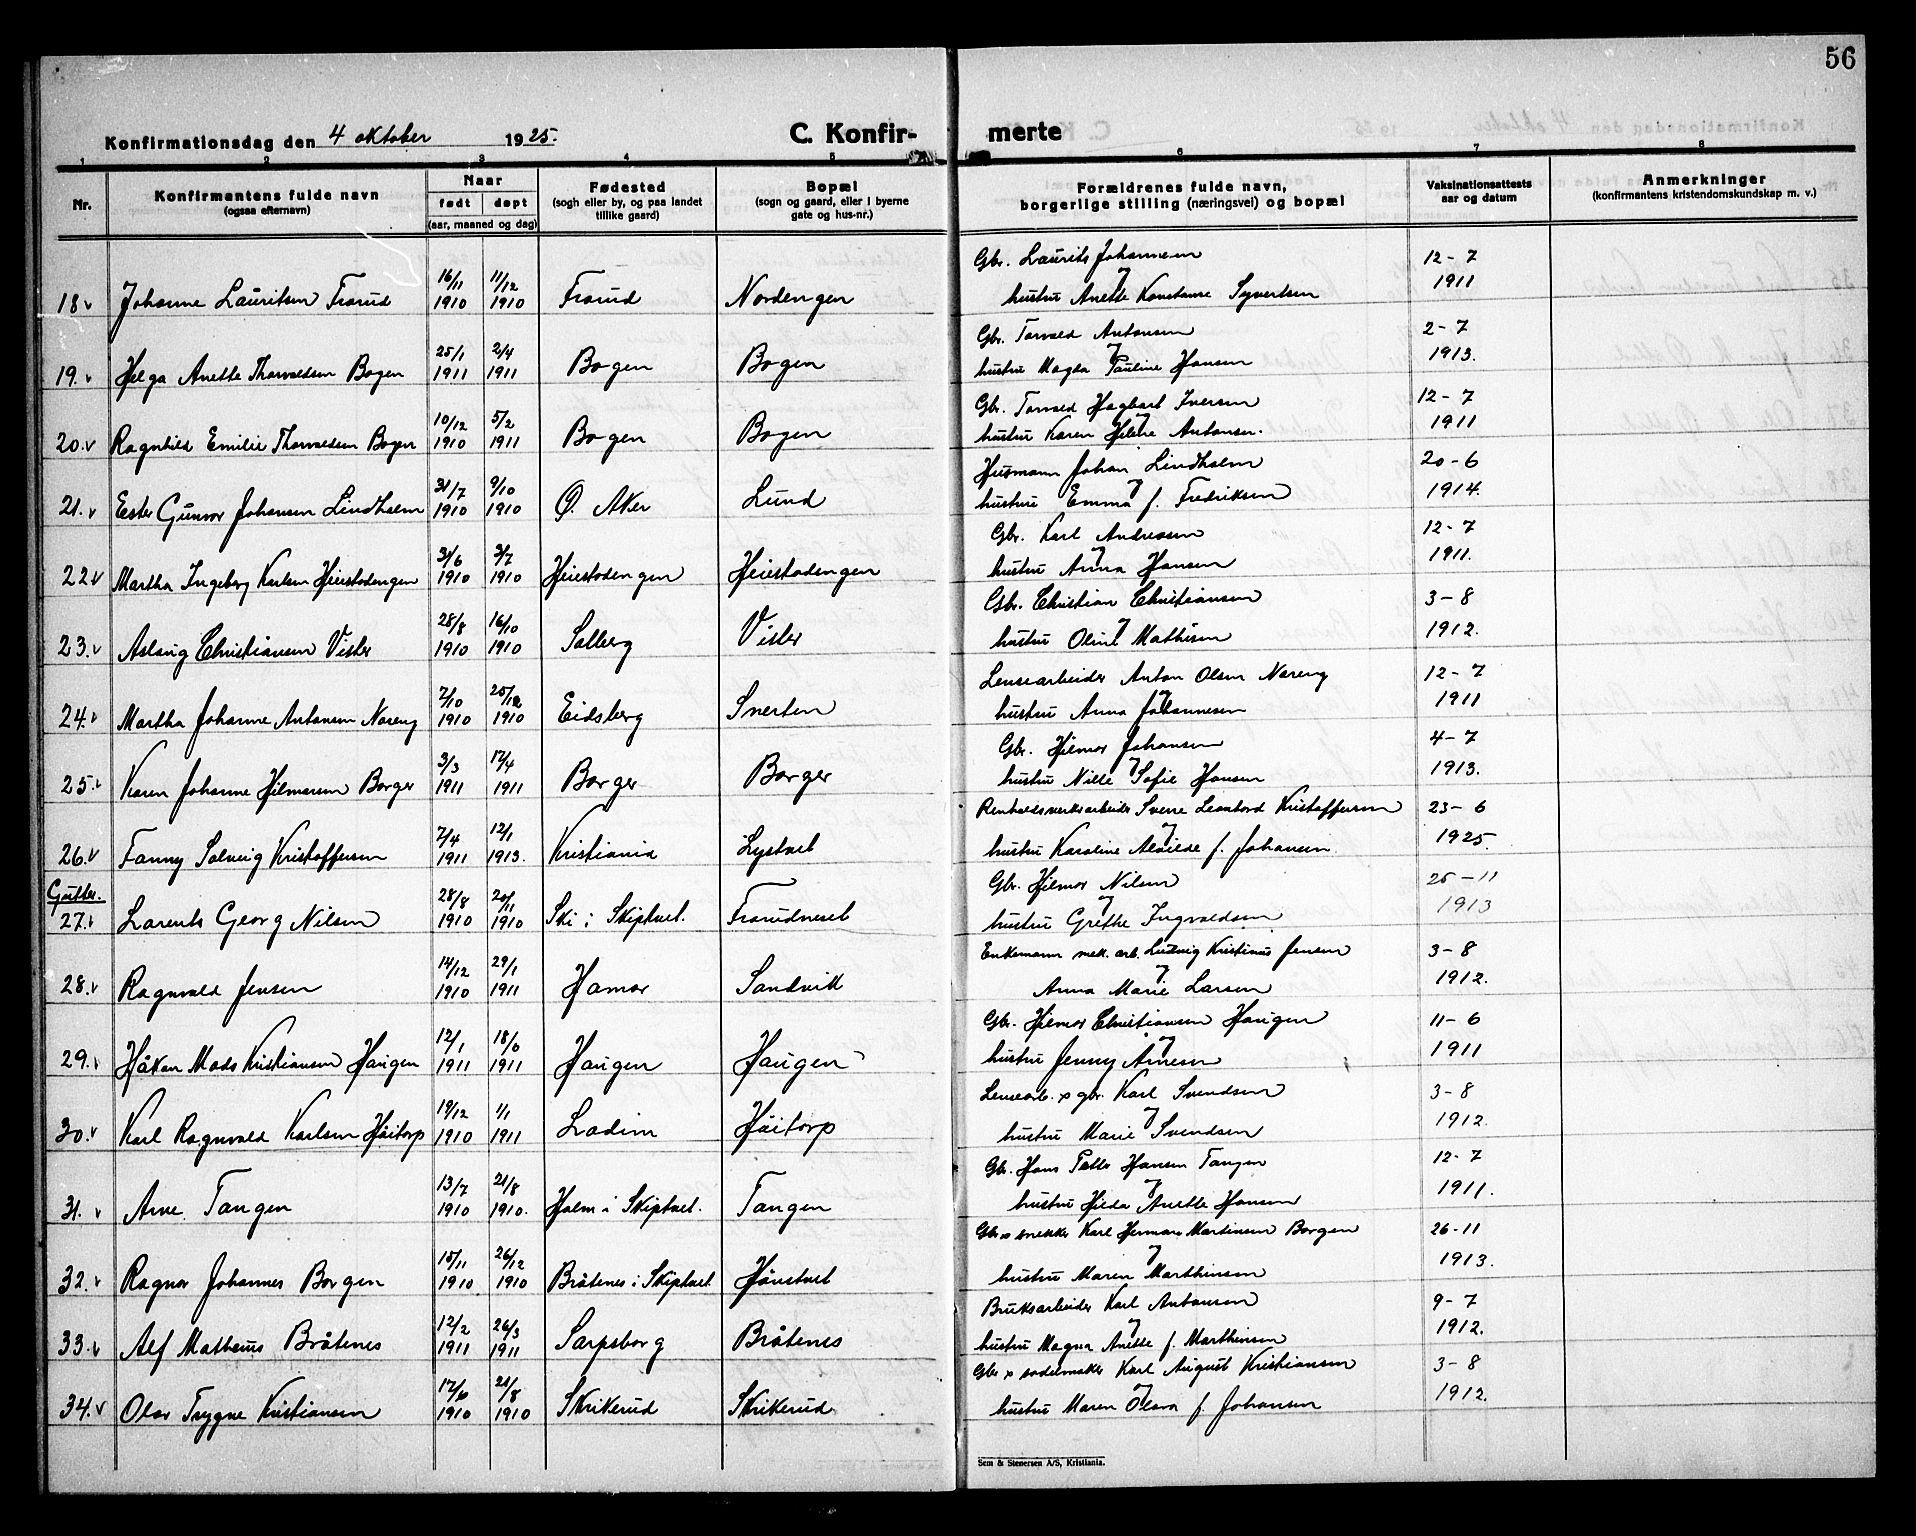 56
Konfirmationsdag den 4 oktober 1925. C. Konfirmerte
1 2 3 4 5 6 7 8
Nr. Konfirmantens fulde navn (ogsaa efternavn) Naar født døpt (aar, maaned og dag) Fødested (sogn eller by, og paa landet tillike gaard) Bopæl (sogn og gaard, eller i byerne gate og hus-nr.) Forældrenes fulde navn, borgerlige stilling (næringsvei) og bopæl Vaksinationsattests aar og datum Anmerkninger (konfirmantens kristendomskundskap m. v.)
18. Johanne Lauritsen Frorud 16/11 1910 11/12 1910 Frorud Nordengen Gbr. Laurits Johannesen og hustru Anette Konstanse Syvertsen 12-7 1911
19. Helga Anette Thorvaldsen Bogen 25/1 1911 2/4 1911 Bogen Bogen Gbr. Torvald Antonsen og hustru Magda Pauline Hansen 2-7 1913.
20. Ragnhild Emilie Thorvaldsen Bogen 10/12 1910 5/2 1911 Bogen Bogen Gbr. Torvald Hagbart Iversen og hustru Karen Helene Antonsen. 12-7 1911
21. Ester Gunvor Johansen Lindholm 31/7 1910 9/10 1910 Ø. Aker Lund Husmann Johan Lindholm og hustru Emma f. Fredriksen 20-6 1914.
22. Martha Ingeborg Karlsen Heiestadengen 3/6 1910 3/7 1910 Heiestadengen Heiestadengen Gbr. Karl Andressen og hustru Anna Hansen 12-7 1911.
23. Aslaug Christiansen Vister 28/8 1910 16/10 1910 Solberg Vister Gbr. Christian Christiansen og hustru Oline Mathisen 3-8 1912.
24. Martha Johanne Antonsen Noreng 7/10 1910 25/12 1910 Eidsberg Snerten Lensearbeider Anton Olsen Noreng og hustru Anna Johannesen 12-7 1911
25. Karen Johanne Hilmarsen Borger 3/3 1911 17/4 1911 Borger Borger Gbr. Hilmar Johansen og hustru Nille Sofie Hansen 4-7 1913.
26. Fanny Solveig Kristoffersen 7/4 1911 12/1 1913. Kristiania Lystvet Renholdsverksarbeider Sverre Leonhard Kristoffersen og hustru Karoline Alvilde f. Johansen 23-6 1925.
Gutter.
27. Larents Georg Nilsen 28/8 1910 20/11 1910 Ski i Skiptvet. Frorudneset Gbr. Hilmar Nilsen og hustru Grethe Ingvaldsen 25-11 1913
28. Ragnvald Jensen 14/12 1910 29/1 1911 Hamar Sandvik Enkemann mek. arb. Ludvig Kristinus Jensen og Anna Marie Larsen 3-8 1912.
29. Håkon Mads Kristiansen Haugen 12/1 1911 18/6 1911 Haugen Haugen Gbr. Hilmar Christiansen Haugen og hustru Jenny Arnesen 11-6 1911
30. Karl Ragnvald Karlsen Høitorp 19/12 1910 1/1 1911 Lodim Høitorp Lensearb. & gbr. Karl Svendsen og hustru Marie Svendsen 3-8 1912.
31. Arne Tangen 13/7 1910 21/8 1910. Holm i Skiptvet. Tangen Gbr. Hans Petter Hansen Tangen og hustru Hilda Anette Hansen 12-7 1911.
32. Ragnar Johannes Borgen 15/11 1910. 26/12 1910 Bråtenes i Skiptvet Hønstvet Gbr. & snekker Karl Herman Martinsen Borgen og hustru Maren Marthinsen 26-11 1913.
33. Alf Matheus Bråtenes 12/2 1911 26/3 1911 Sarpsborg Bråtenes Bruksarbeider Karl Antonsen og hustru Magna Anette f. Marthinsen 9-7 1912.
34. Olav Trygve Kristiansen 17/6 1910 21/8 1910 Skrikerud Skrikerud Gbr & sadelmaker Karl August Kristiansen og hustru Maren Olava f. Johansen 3-8 1912.
Sem & Stenersen A/S, Kristiania.